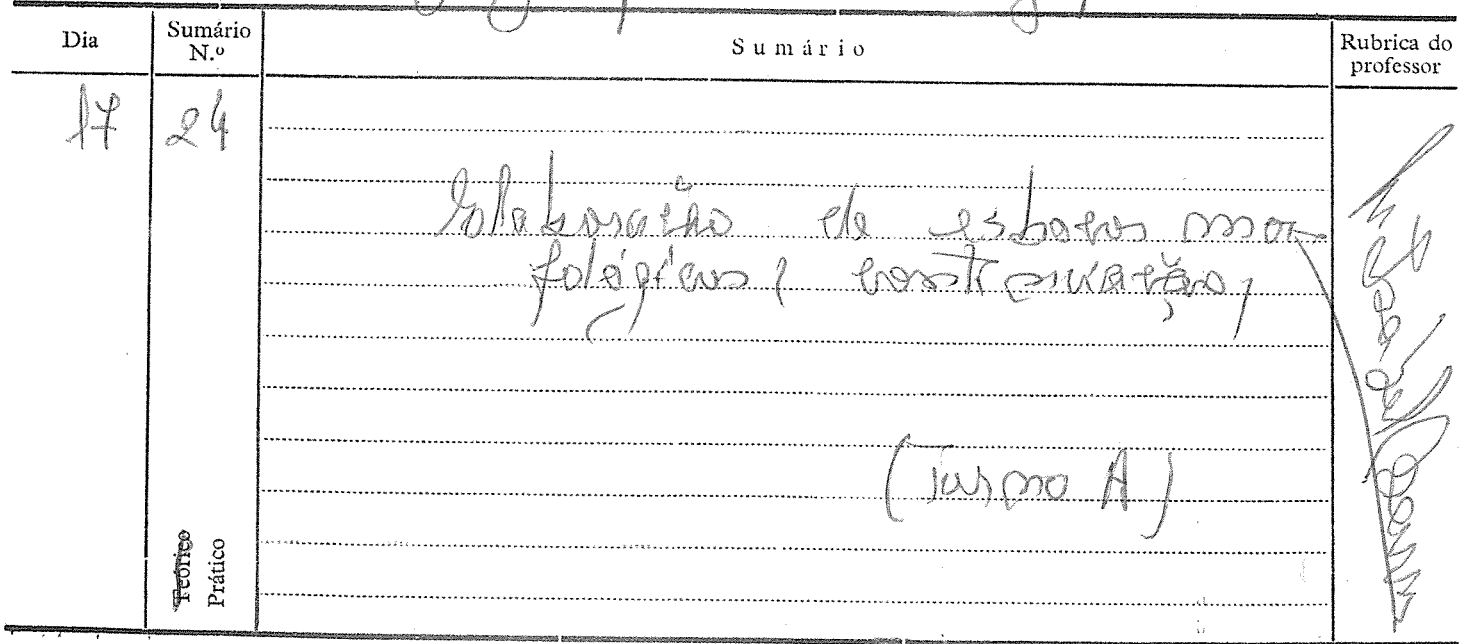 Dia
Sumário N.º
Sumário
Rubrica do professor
17
24
Elaboração de esboços mor-
fológicos (continuação)
(Turma A)
Teórico
Prático